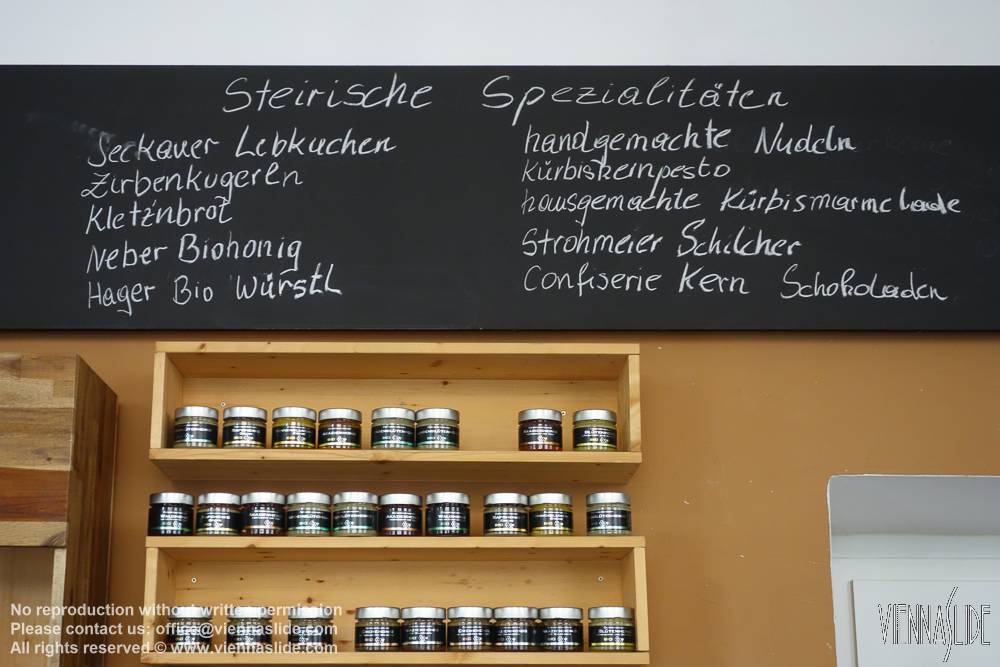 Steirische Spezialitäten
Seckauer Lebkuchen
Zirbenkugerln
Kletz'nbrot
Neber Biohonig
Hager Bio Würstl
handgemachte Nudeln
Kürbiskernpesto
hausgemachte Kürbismarmelade
Strohmeier Schilcher
Confiserie Kern Schokoladen
No reproduction without written permission
Please contact us: office@viennaslide.com
All rights reserved © www.viennaslide.com
VIENNASLIDE